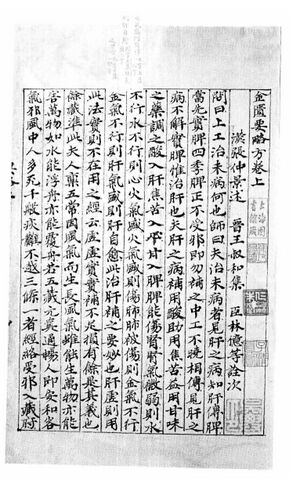 金匱要略方卷上
漢張仲景述 晉王叔和集 臣林億等詮次
問曰上工治未病何也師曰夫治未病者見肝之病知肝傳脾
當先實脾四季脾王不受邪即勿補之中工不曉相傳見肝之
病不解實脾惟治肝也夫肝之病補用酸助用焦苦益用甘味
之藥調之酸入肝焦苦入心甘入脾脾能傷腎腎氣微弱則水
不行水不行則心火氣盛心火氣盛則傷肺肺被傷則金氣不行
金氣不行則肝氣盛則肝自愈此治肝補脾之要妙也肝虛則用
此法實則不在用之經云虛虛實實補不足損有餘是其義也
餘藏準此夫人稟五常因風氣而生長風氣雖能生萬物亦能
害萬物如水能浮舟亦能覆舟若五藏元真通暢人即安和客
氣邪風中人多死千般疢難不越三條一者經絡受邪入藏腑
上海圖書館藏